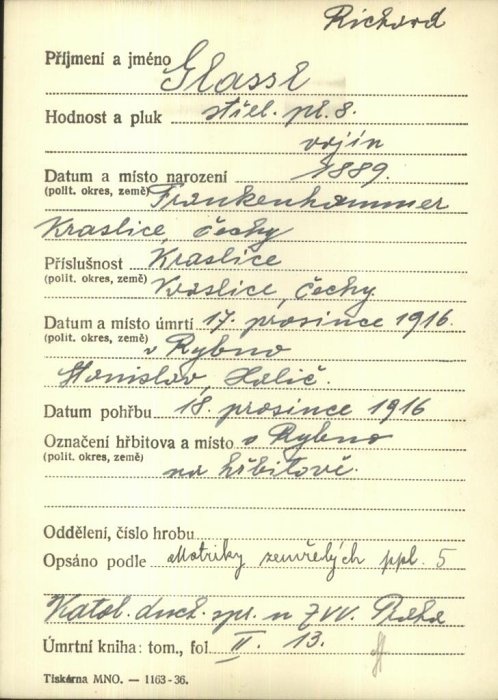 Richard
Příjmení a jméno Glassl
Hodnost a pluk střel. pl. 8.
vojín
Datum a místo narození 1889.
(polit. okres, země) Frankenhammer
Kraslice, čechy
Příslušnost Kraslice
(polit. okres, země) Kraslice, čechy
Datum a místo úmrtí 17. prosince 1916.
(polit. okres, země) v Rybno
Stanislav, Halič.
Datum pohřbu 18. prosince 1916
Označení hřbitova a místo v Rybno
(polit. okres, země) na hřbitově.
Oddělení, číslo hrobu
Opsáno podle Matriky zemřelých ppl. 5
Katol. duch. spr. u ZVV. Praha
Úmrtní kniha: tom., fol. II. 13.
Tiskárna MNO. — 1163-36.